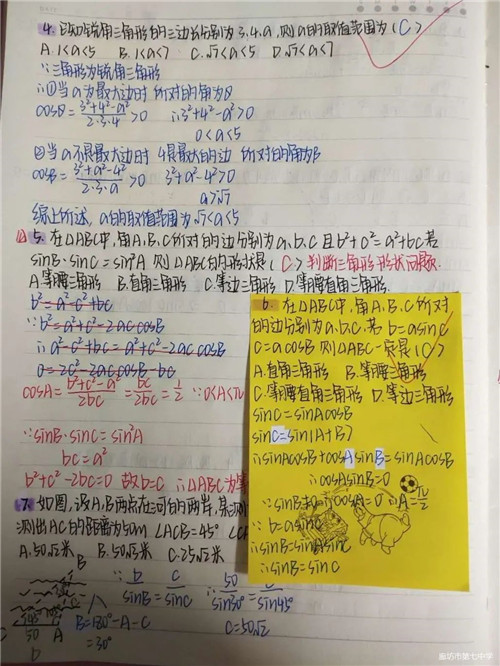 4. 已知锐角三角形的三边长分别为3.4.a,则a的取值范围为(C)
A.1<a<5 B.1<a<7 C.√7<a<5 D.√7<a<7
∵三角形为锐角三角形
∴①当a为最大边时 所对的角为θ
cosθ=(3²+4²-a²)/(2·3·4)>0 ∴3²+4²-a²>0
0<a<5
②当a不是最大边时 4是最大的边 所对的角为β
cosβ=(3²+a²-4²)/(2·3·a)>0 3²+a²-4²>0
a>√7
综上所述,a的取值范围为√7<a<5
5. 在△ABC中,角A.B.C所对的边分别为a.b.c且b²+c²=a²+bc若
sinB·sinC=sin²A 则△ABC的形状是(C)判断三角形形状问题
A.等腰三角形 B.直角三角形 C.等边三角形 D.等腰直角三角形
b²=a²-c²+bc
∵b²=a²+c²-2accosB
∴a²-c²+bc=a²+c²-2accosB
0=2c²-2accosB-bc
cosA=(b²+c²-a²)/2bc=bc/2bc=1/2 ∵0<A<π
∵sinB·sinC=sin²A
bc=a²
b²+c²-2bc=0 故b=c ∴△ABC为等
6. 在△ABC中,角A.B.C所对
的边分别为a.b.c.若b=asinC
c=acosB则△ABC一定是(C)
A.直角三角形 B.等腰三角形
C.等腰直角三角形 D.等边三角形
sinC=sinAcosB
sinC=sin(A+B)
∴sinAcosB+cosAsinB=sinAcosB
∴cosAsinB=0
∵sinB≠0∴cosA=0∴A=π/2
∵b=asinC
∴sinB=sinAsinC
∴sinB=sinC
7. 如图,设A.B两点在河的两岸,某测
测出AC的距离为50m ∠ACB=45° ∠C
A.50√2米 B.50√3米 C.25√2米
B
∵b/sinB=c/sinC ∴50/sin30°=c/sin45°
B=180°-A-C
=30°
c=50√2
50 A
D
廊坊市第七中学